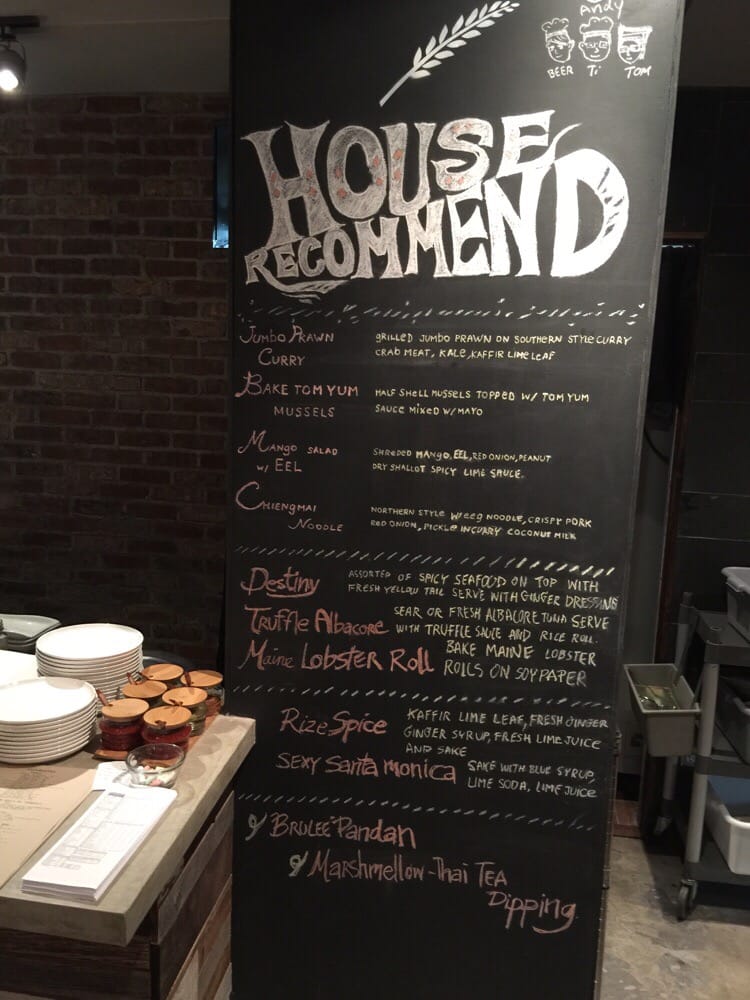 Andy
BEER Ti TOM
HOUSE
RECOMMEND
JUMBO PRAWN
CURRY
GRILLED JUMBO PRAWN ON SOUTHERN STYLE CURRY
CRAB MEAT, KALE, KAFFIR LIME LEAF
BAKE TOM YUM
MUSSELS
HALF SHELL MUSSELS TOPPED W/ TOM YUM
SAUCE MIXED W/MAYO
MANGO SALAD
W/ EEL
SHREDED MANGO, EEL, RED ONION, PEANUT
DRY SHALLOT SPICY LIME SAUCE.
CHIENGMAI
NOODLE
NORTHERN STYLE NOODLE, CRISPY PORK
RED ONION, PICKLE IN CURRY COCONUT MILK
Destiny
ASSORTED OF SPICY SEAFOOD ON TOP WITH
FRESH YELLOW TAIL SERVE WITH GINGER DRESSING
Truffle Albacore
SEAR OR FRESH ALBACORE TUNA SERVE
WITH TRUFFLE SAUCE AND RICE ROLL.
Maine Lobster Roll
BAKE MAINE LOBSTER
ROLLS ON SOY PAPER
Rize Spice
KAFFIR LIME LEAF, FRESH GINGER
GINGER SYRUP, FRESH LIME JUICE
AND SAKE
SEXY Santa monica
SAKE WITH BLUE SYRUP,
LIME SODA, LIME JUICE
BRULEE Pandan
Marshmellow-Thai TEA
Dipping